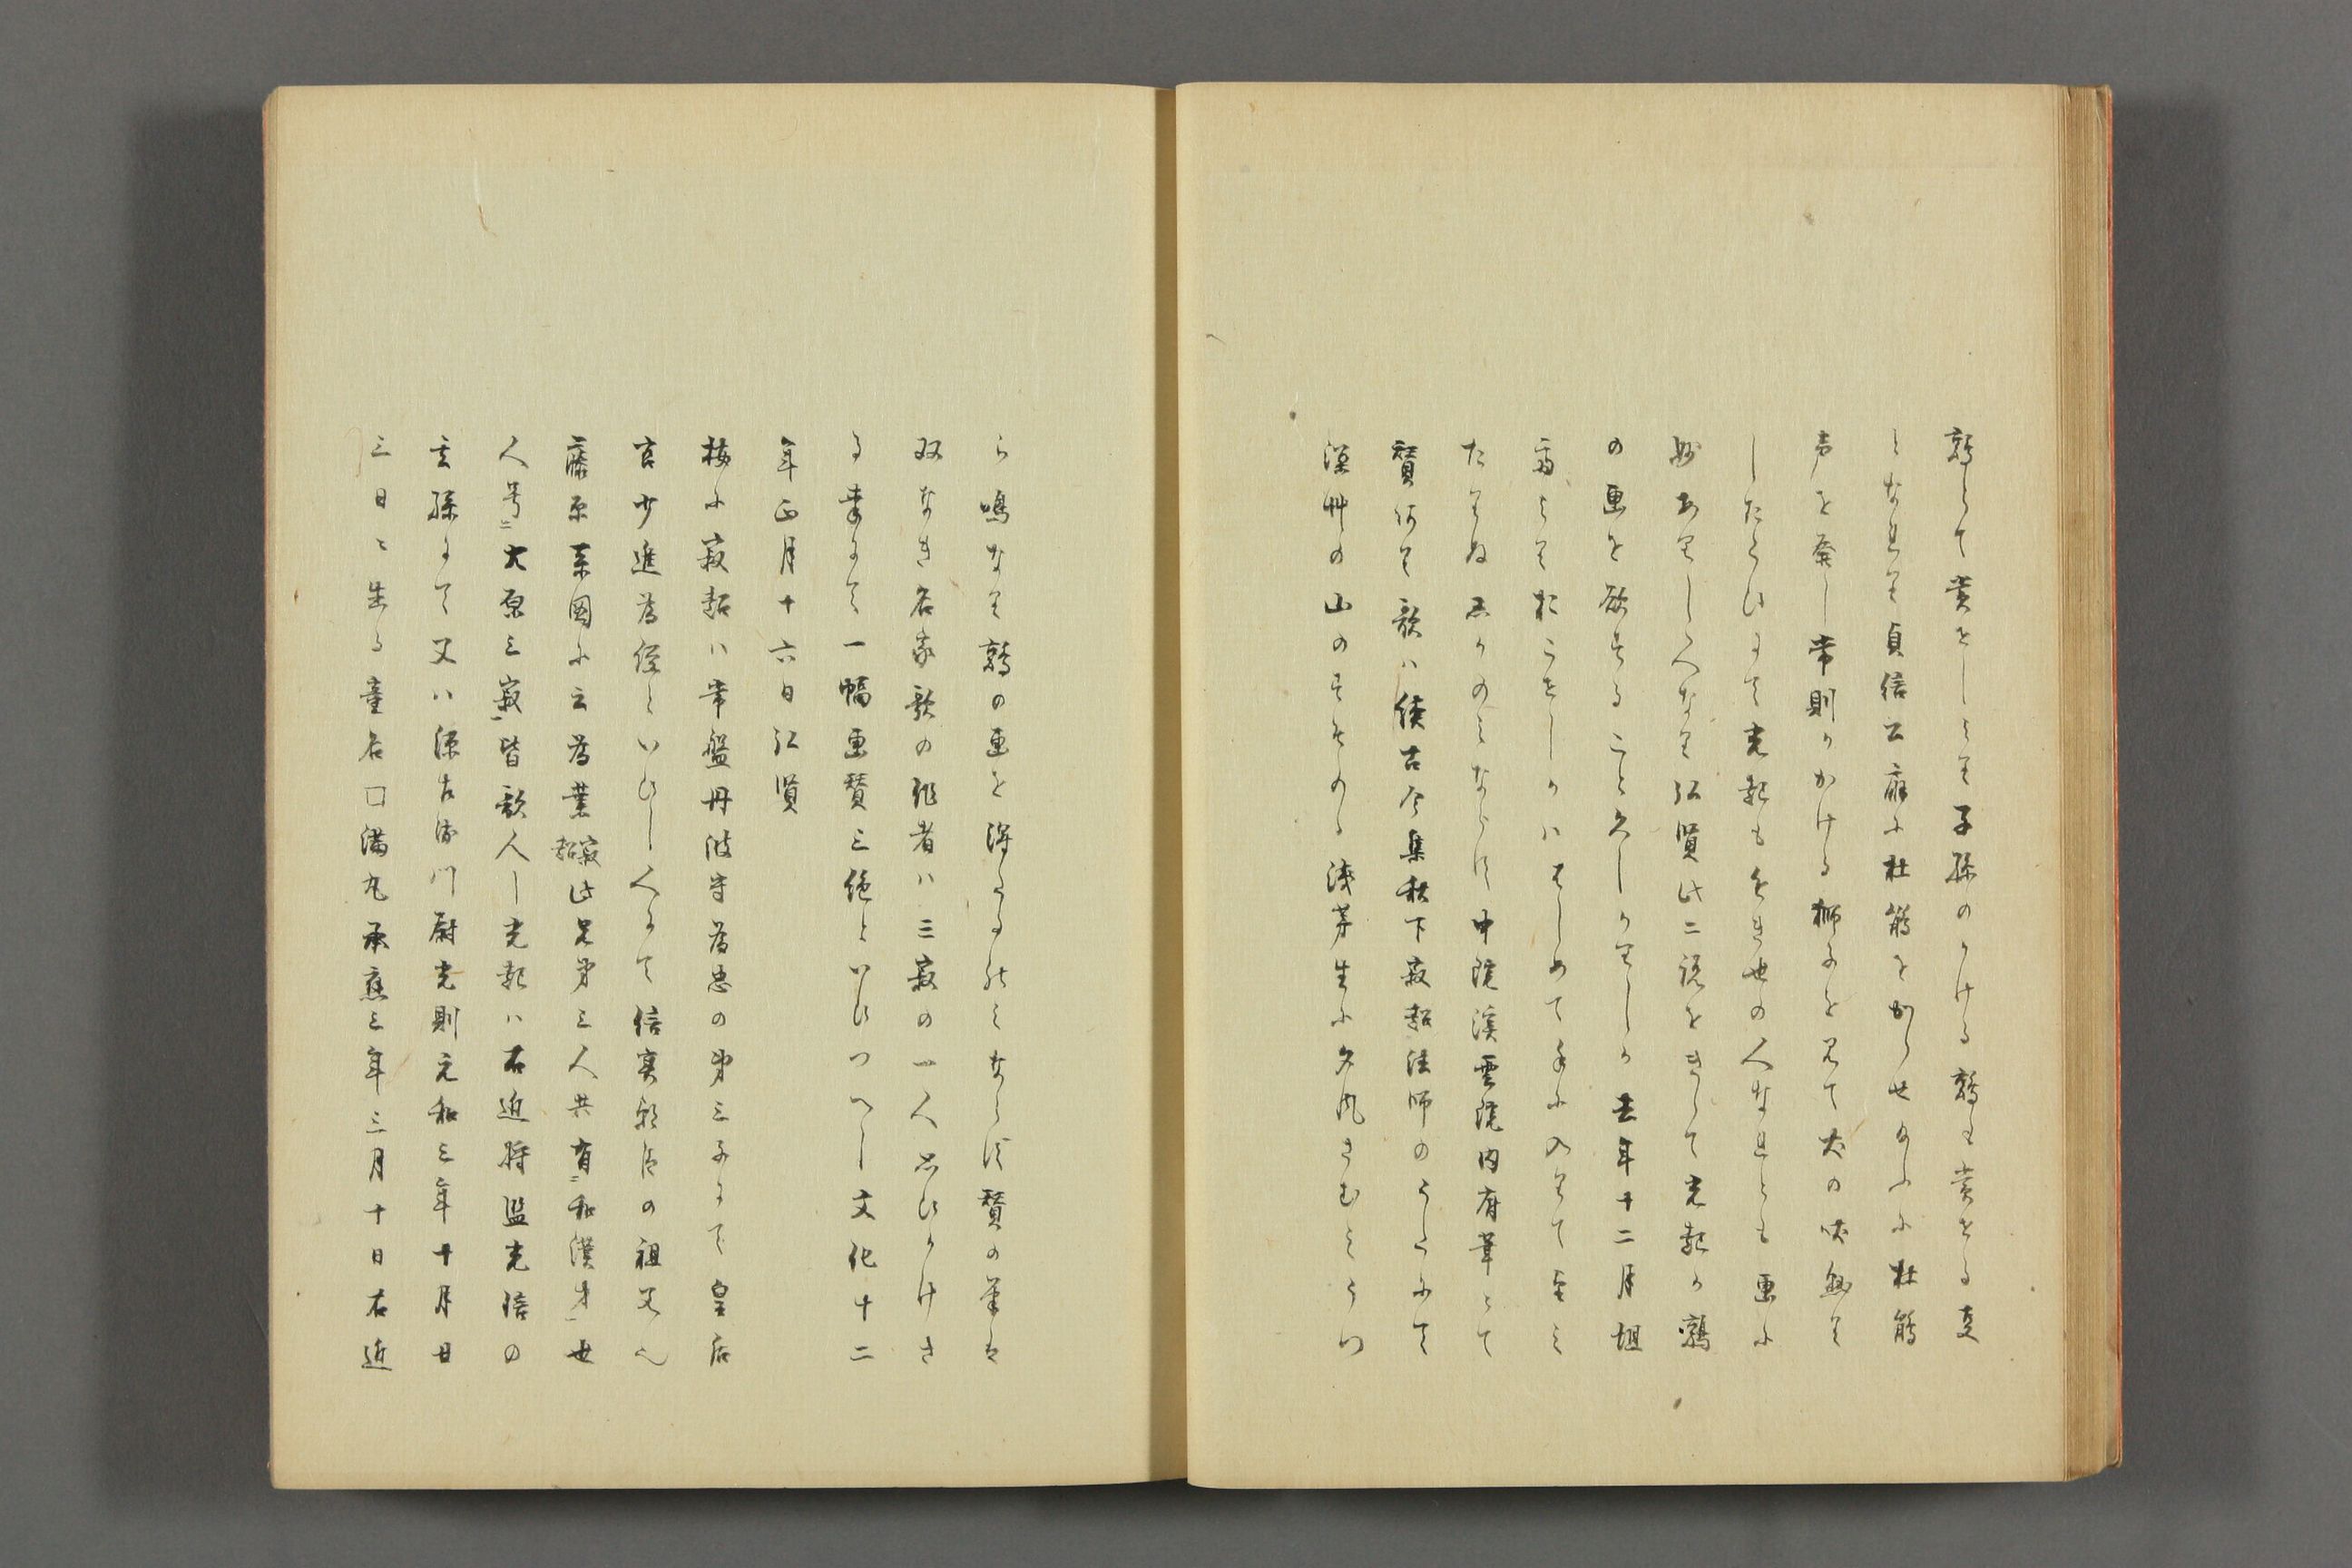 鶉とて賞をしより子孫のかける鶉も賞せる支
となれり貞信公扇に杜鵑をかゝせ給ふに杜鵑
声を発し常則かかける獅子を見て犬の吠し
したくひにて光起もちかき世の人なれとも画に
妙ありし人なり弘賢此二説をきゝて光起か鶉
の画を欲する こと久しかりしか去年十二月
よりおこせしかはしめて手に入りて
たりぬ のみならす中院渓雲院内府筆とて
賛有り歌ハ続古今集秋下寂超法師のうたにて
深艸の山のすそのゝ浅茅生に夕風さむくうつ
ら鳴なり鶉の画を得たるのみならす賛の筆は
双なき名家歌の作者ハ三寂の一人思ひかけさ
る幸にて一幅画賛三絶といひつへし文化十二
年正月十六日弘賢
按に寂超ハ常盤丹波守為忠の第三子にて皇后
宮少進為経といひし人にて信実朝臣の祖父也
藤原系図に云為業寂超此兄弟三人共有和漢才世
人号大原三寂皆歌人ー光起ハ右近将監光信の
玄孫にて父ハ源左衛門尉光則元和三年十月廿
三日ニ生る童名口満丸承応三年三月十日右近